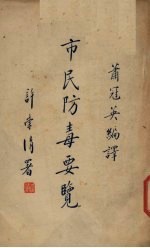 蕭冠英編譯
市民防毒要覽
許崇清署